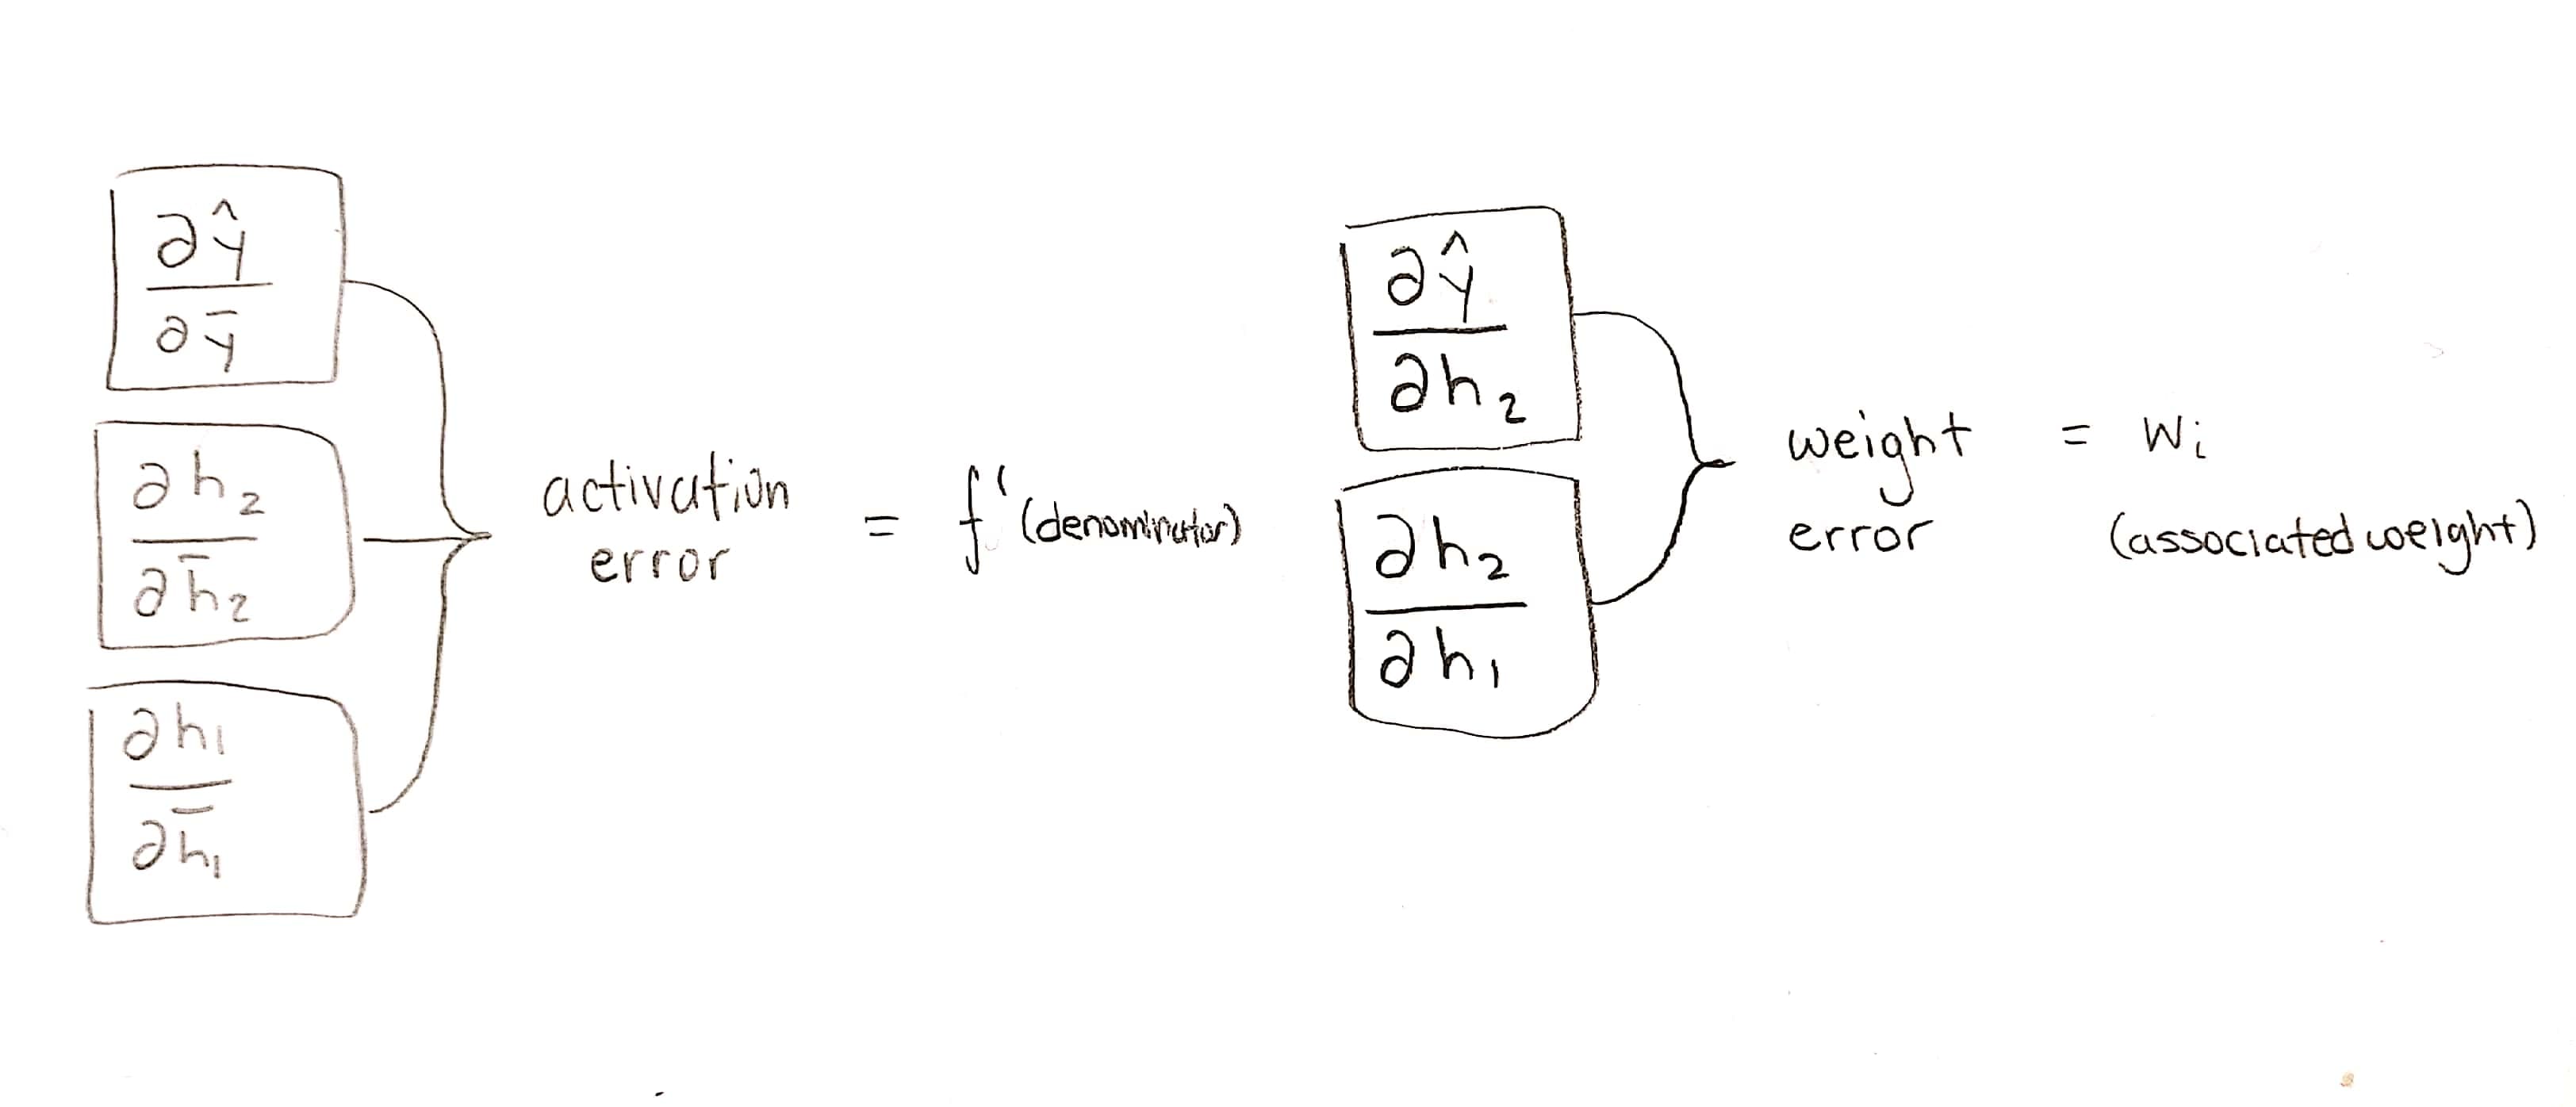 ∂ŷ
∂ȳ
∂h₂
∂h̄₂
∂h₁
∂h̄₁
activation
error
= f'(denominator)
∂ŷ
∂h₂
∂h₂
∂h₁
weight
error
= wᵢ
(associated weight)